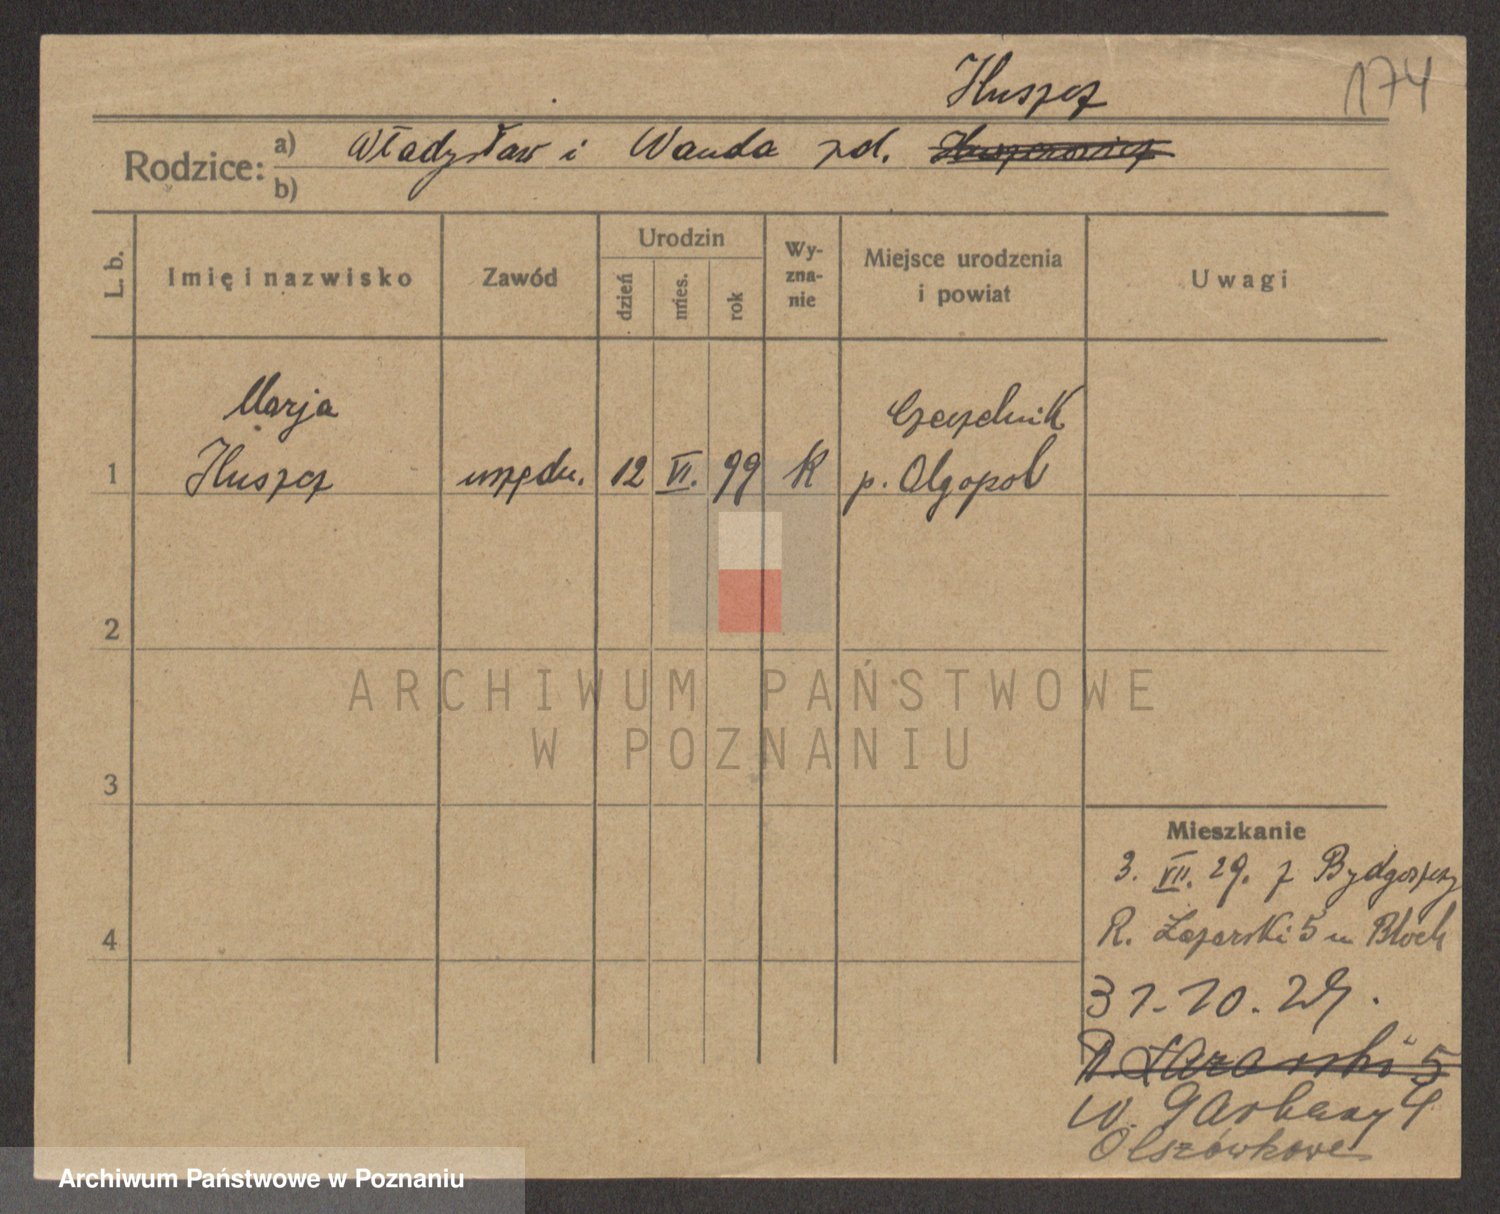 174
Huszcz
Rodzice: a) Władysław i Wanda zd.
b)
L. b. Imię i nazwisko Zawód Urodzin dzień mies. rok Wy-zna-nie Miejsce urodzenia i powiat Uwagi
Marja Czeczelnik
1 Huszcz urzędn. 12 VI. 99 K p. Olgopol
2
ARCHIWUM PAŃSTWOWE
W POZNANIU
3
4
Mieszkanie
3. VII. 29. z Bydgoszczy
R. Łazarski 5 u Bloch
31-10.29.
R. Łazarski 5
W. Garbary 4
Olszówkowe
Archiwum Państwowe w Poznaniu